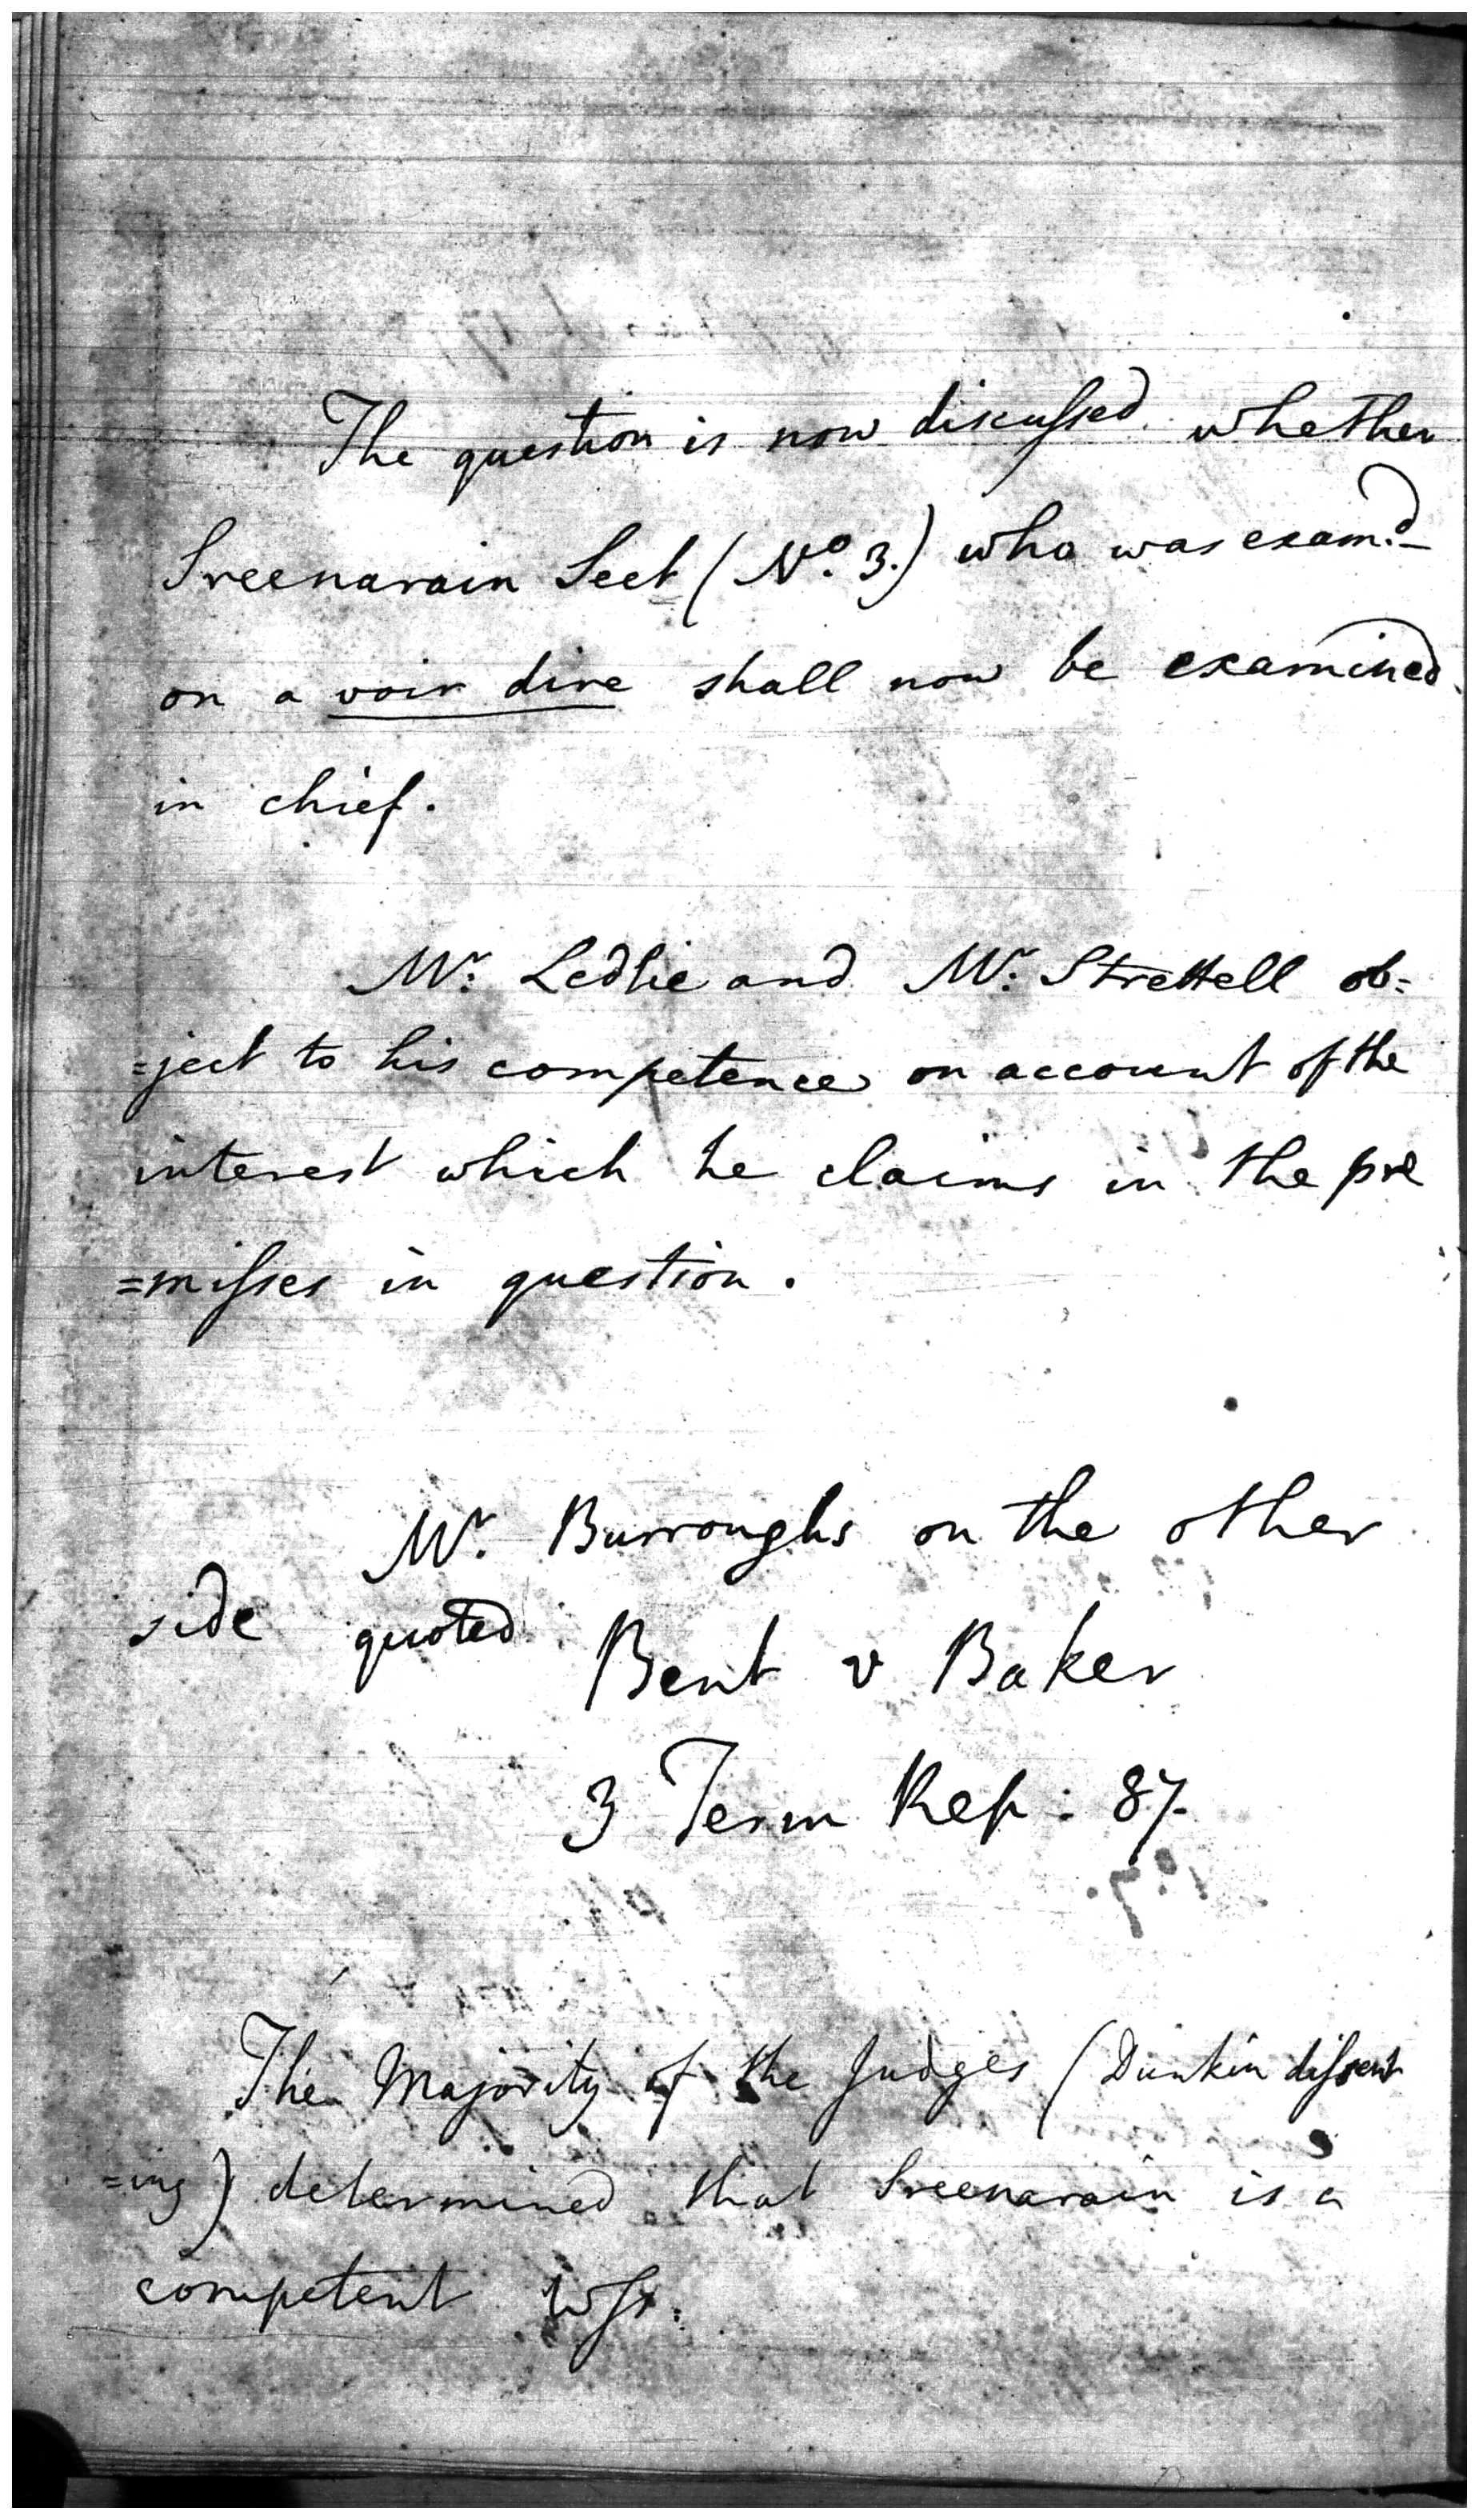 The question is now discussed whether
Sreenarain Seet (No. 3.) who was examd.
on a voir dire shall now be examined
in chief.
Mr. Ledlie and Mr. Strettell ob=
=ject to his competence on account of the
interest which he claims in the pre
=misses in question.
Mr. Burroughs on the other
side quoted Bent v Baker
3 Term Rep: 87.
The Majority of the Judges (Dunkin dissent
=ing) determined that Sreenarain is a
competent Wss.